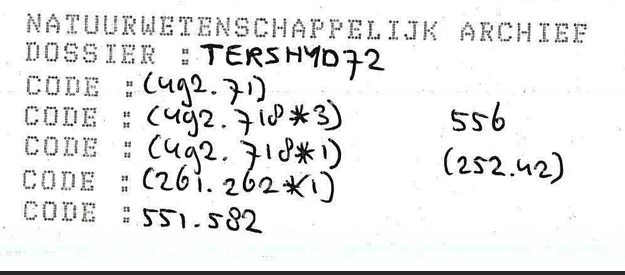 NATUURWETENSCHAPPELIJK ARCHIEF
DOSSIER : TERSHYD72
CODE : (492.71)
CODE : (492.718*3) 556
CODE : (492.718*1) (252.42)
CODE : (261.262*1)
CODE : 551.582